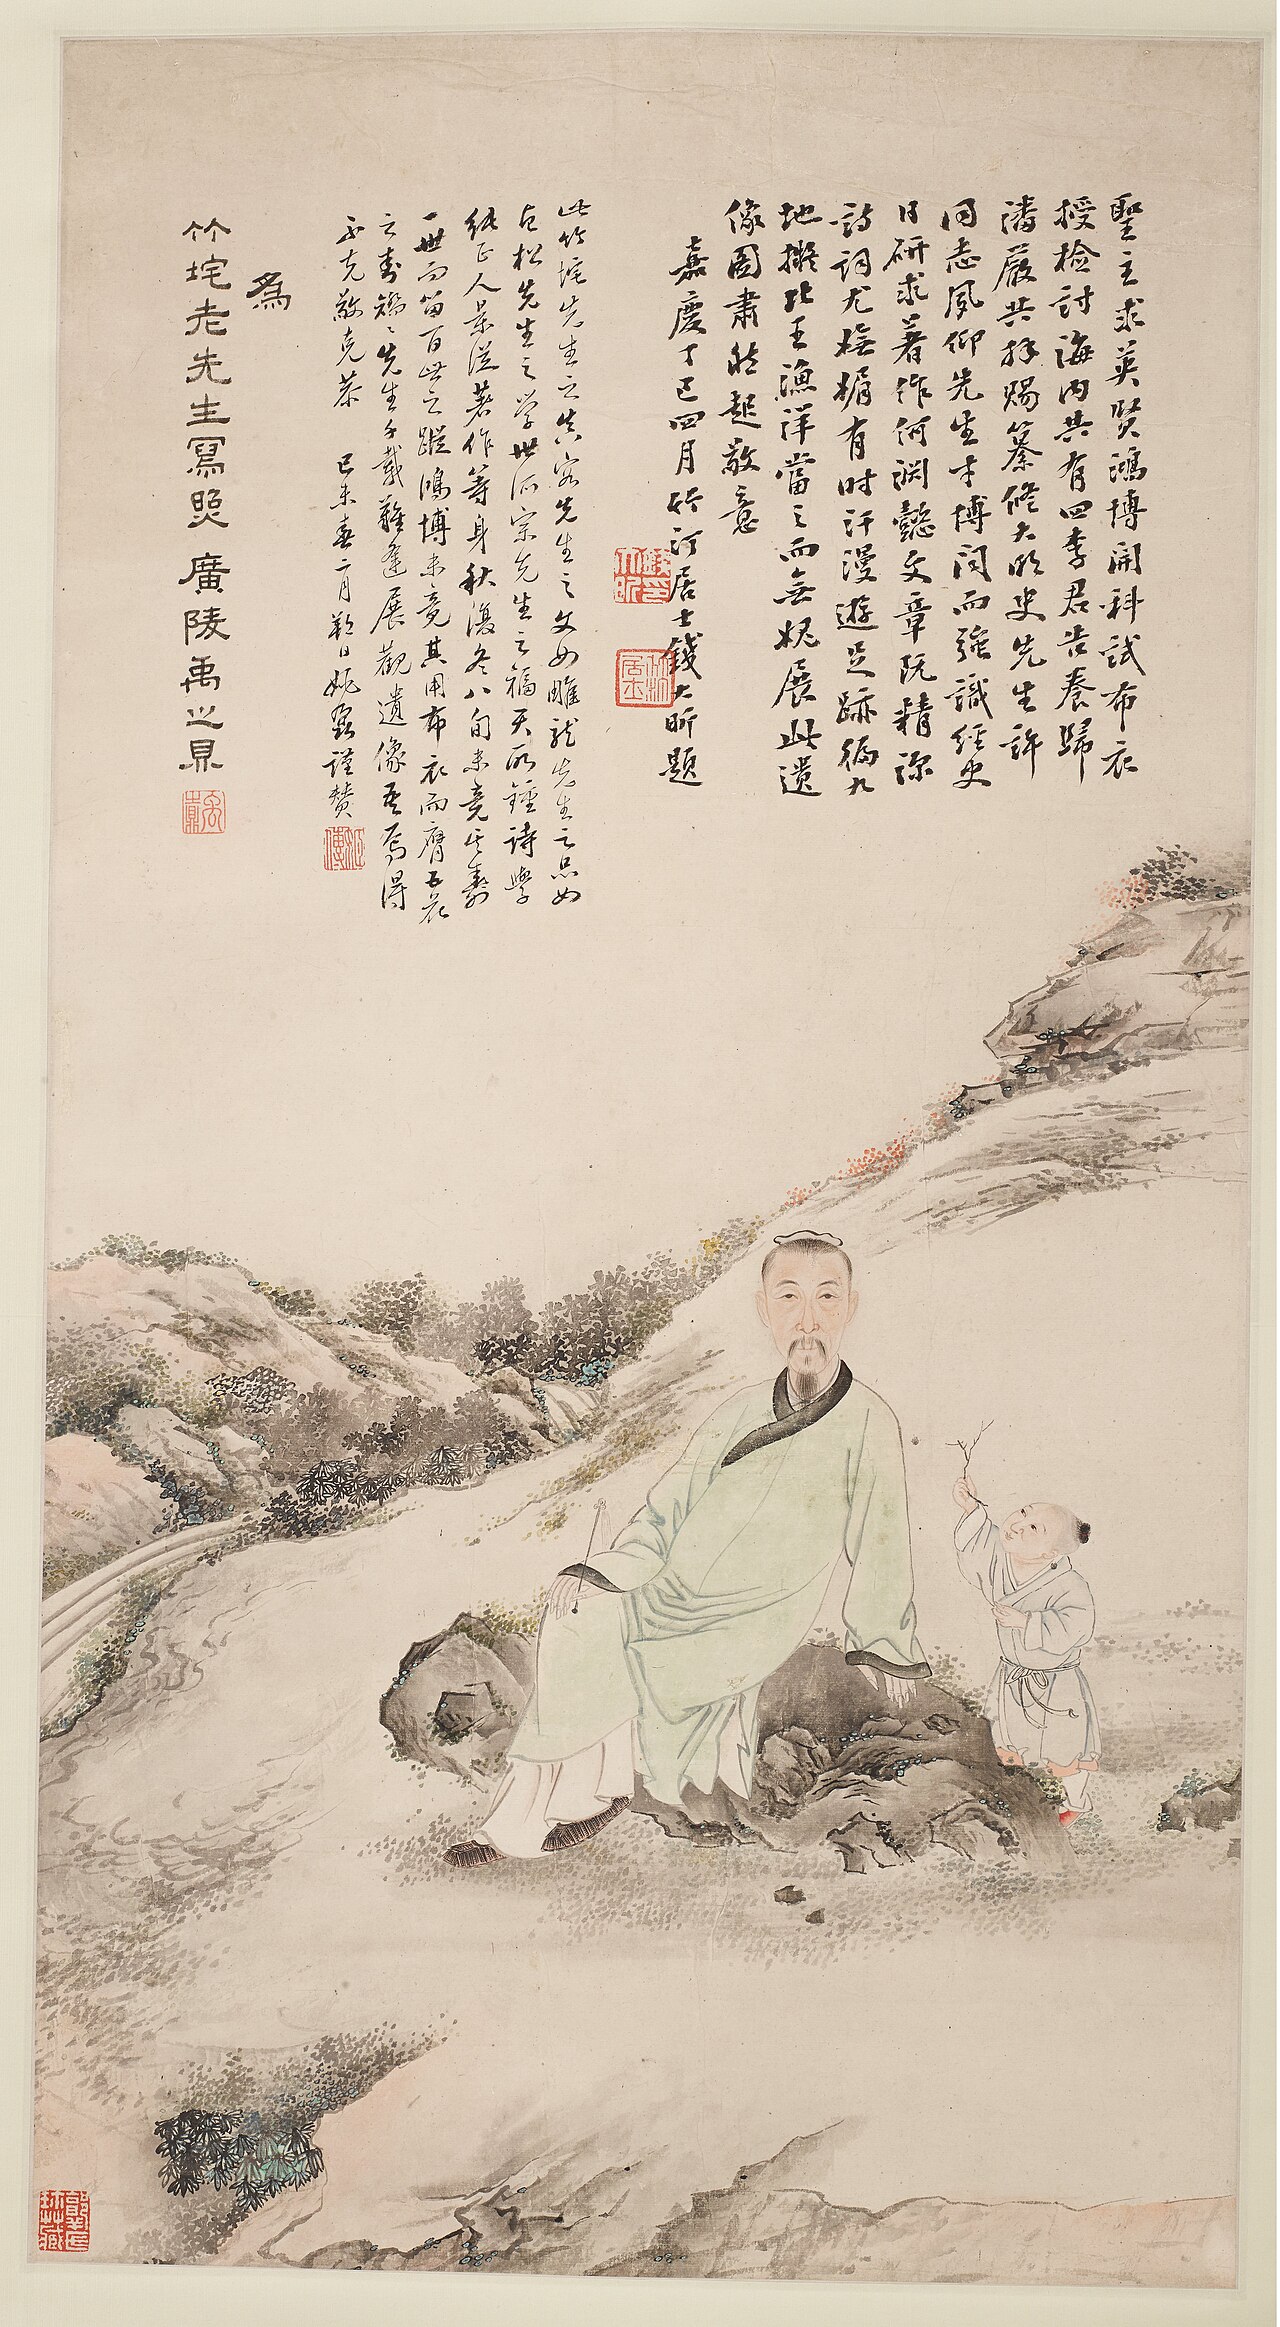 聖主求英賢鴻博開科試布衣
授檢討海內共有四李君告養歸
潘嚴共拜賜纂修大明史先生許
同志夙仰先生才博聞而強識經史
日研求著作何淵懿文章既精深
詩詞尤旖旎有時汗漫遊足跡徧九
地擬北王漁洋當之而無愧展此遺
像圖肅然起敬意
嘉慶丁巳四月竹汀居士錢大昕題
此竹垞先生之真容先生之文如雕龍先生之品如
古松先生之學世所宗先生之福天所鍾詩學
純正人景從著作等身秋復冬八旬未竟其壽
一世而留百世之蹤鴻博未竟其用布衣而膺五花
之封先生千載難逢展觀遺像吾焉得
不克敬克恭
己未春二月 姚鼐謹贊
為
竹垞老先生寫照 廣陵禹之鼎